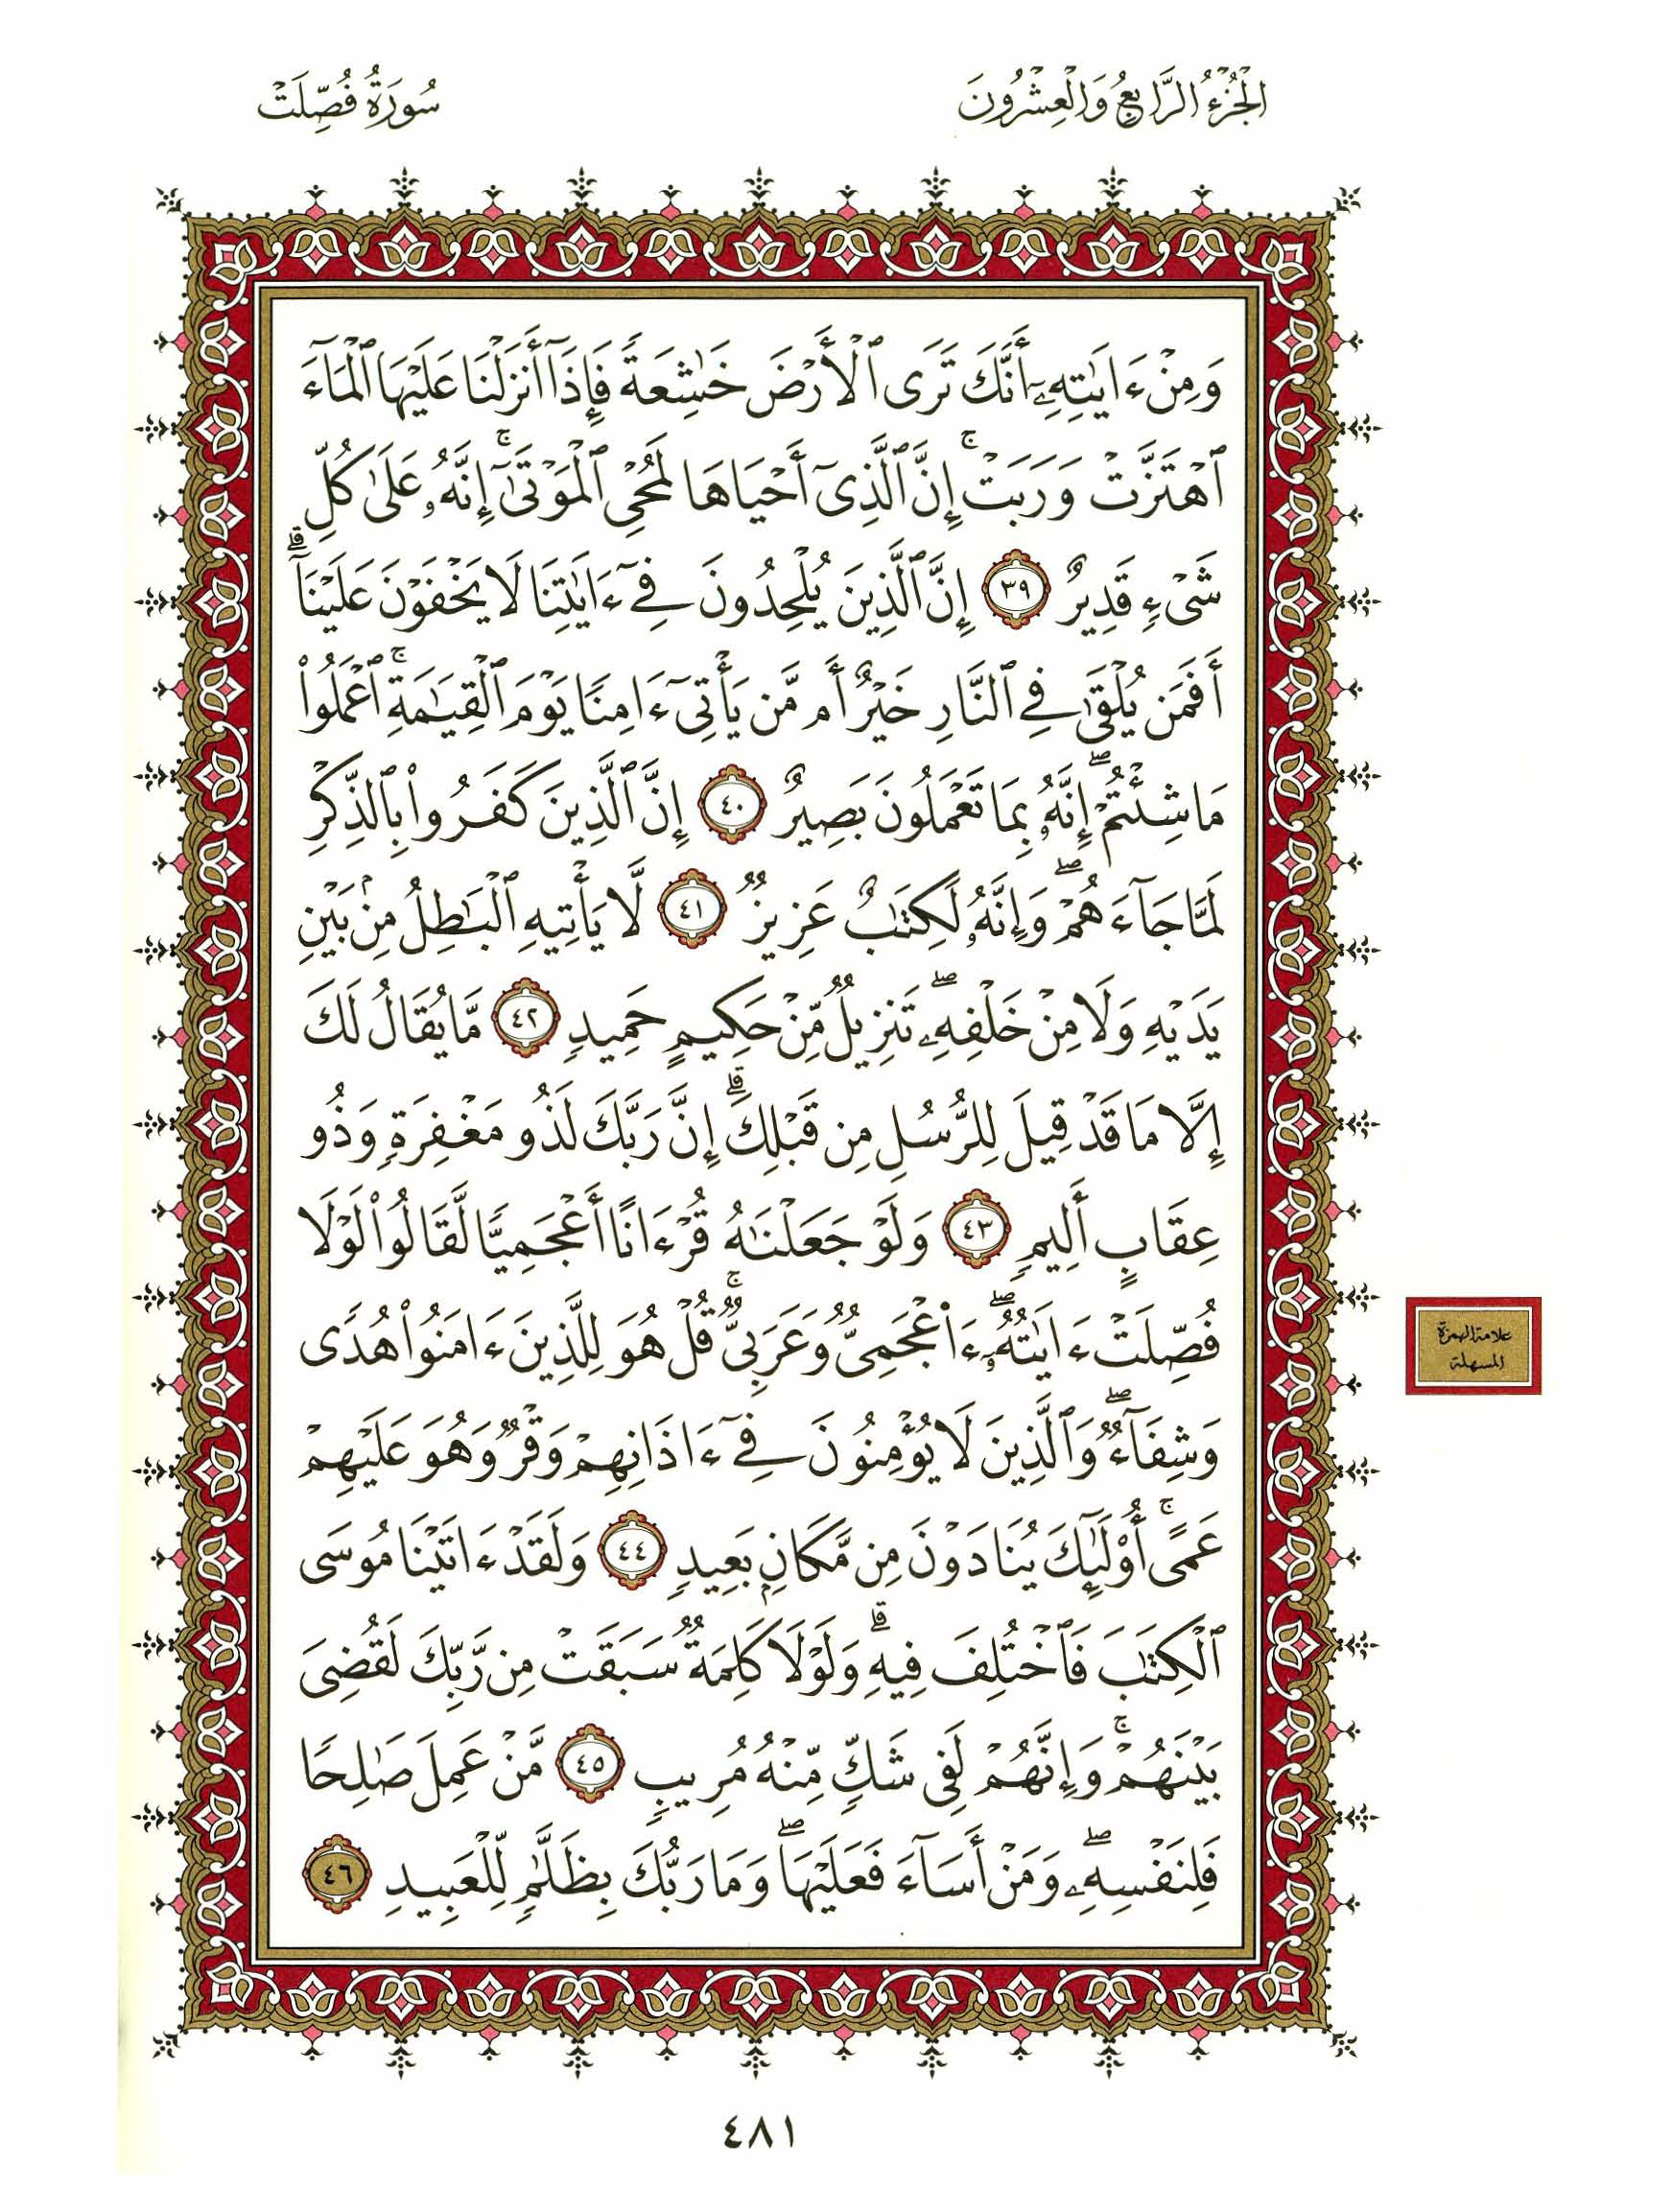 الجُزْءُ الرَّابِعُ وَالْعِشْرُونَ
سُورَةُ فُصِّلَتْ
وَمِنْ ءَايَٰتِهِۦٓ أَنَّكَ تَرَى ٱلْأَرْضَ خَٰشِعَةً فَإِذَآ أَنزَلْنَا عَلَيْهَا ٱلْمَآءَ
ٱهْتَزَّتْ وَرَبَتْ ۚ إِنَّ ٱلَّذِىٓ أَحْيَاهَا لَمُحْىِ ٱلْمَوْتَىٰٓ ۚ إِنَّهُۥ عَلَىٰ كُلِّ
شَىْءٍ قَدِيرٌ ٣٩ إِنَّ ٱلَّذِينَ يُلْحِدُونَ فِىٓ ءَايَٰتِنَا لَا يَخْفَوْنَ عَلَيْنَآ ۗ
أَفَمَن يُلْقَىٰ فِى ٱلنَّارِ خَيْرٌ أَم مَّن يَأْتِىٓ ءَامِنًا يَوْمَ ٱلْقِيَٰمَةِ ۚ ٱعْمَلُوا۟
مَا شِئْتُمْ ۖ إِنَّهُۥ بِمَا تَعْمَلُونَ بَصِيرٌ ٤٠ إِنَّ ٱلَّذِينَ كَفَرُوا۟ بِٱلذِّكْرِ
لَمَّا جَآءَهُمْ ۖ وَإِنَّهُۥ لَكِتَٰبٌ عَزِيزٌ ٤١ لَّا يَأْتِيهِ ٱلْبَٰطِلُ مِنۢ بَيْنِ
يَدَيْهِ وَلَا مِنْ خَلْفِهِۦ ۖ تَنزِيلٌ مِّنْ حَكِيمٍ حَمِيدٍ ٤٢ مَّا يُقَالُ لَكَ
إِلَّا مَا قَدْ قِيلَ لِلرُّسُلِ مِن قَبْلِكَ ۗ إِنَّ رَبَّكَ لَذُو مَغْفِرَةٍ وَذُو
عِقَابٍ أَلِيمٍ ٤٣ وَلَوْ جَعَلْنَٰهُ قُرْءَانًا أَعْجَمِيًّا لَّقَالُوا۟ لَوْلَا
فُصِّلَتْ ءَايَٰتُهُۥٓ ۖ ءَا۬عْجَمِىٌّ وَعَرَبِىٌّ ۗ قُلْ هُوَ لِلَّذِينَ ءَامَنُوا۟ هُدًى
وَشِفَآءٌ ۖ وَٱلَّذِينَ لَا يُؤْمِنُونَ فِىٓ ءَاذَانِهِمْ وَقْرٌ وَهُوَ عَلَيْهِمْ
عَمًى ۚ أُو۟لَٰٓئِكَ يُنَادَوْنَ مِن مَّكَانٍۭ بَعِيدٍ ٤٤ وَلَقَدْ ءَاتَيْنَا مُوسَى
ٱلْكِتَٰبَ فَٱخْتُلِفَ فِيهِ ۗ وَلَوْلَا كَلِمَةٌ سَبَقَتْ مِن رَّبِّكَ لَقُضِىَ
بَيْنَهُمْ ۚ وَإِنَّهُمْ لَفِى شَكٍّ مِّنْهُ مُرِيبٍ ٤٥ مَّنْ عَمِلَ صَٰلِحًا
فَلِنَفْسِهِۦ ۖ وَمَنْ أَسَآءَ فَعَلَيْهَا ۖ وَمَا رَبُّكَ بِظَلَّٰمٍ لِّلْعَبِيدِ ٤٦
علامة الهمزة
المسهلة
٤٨١